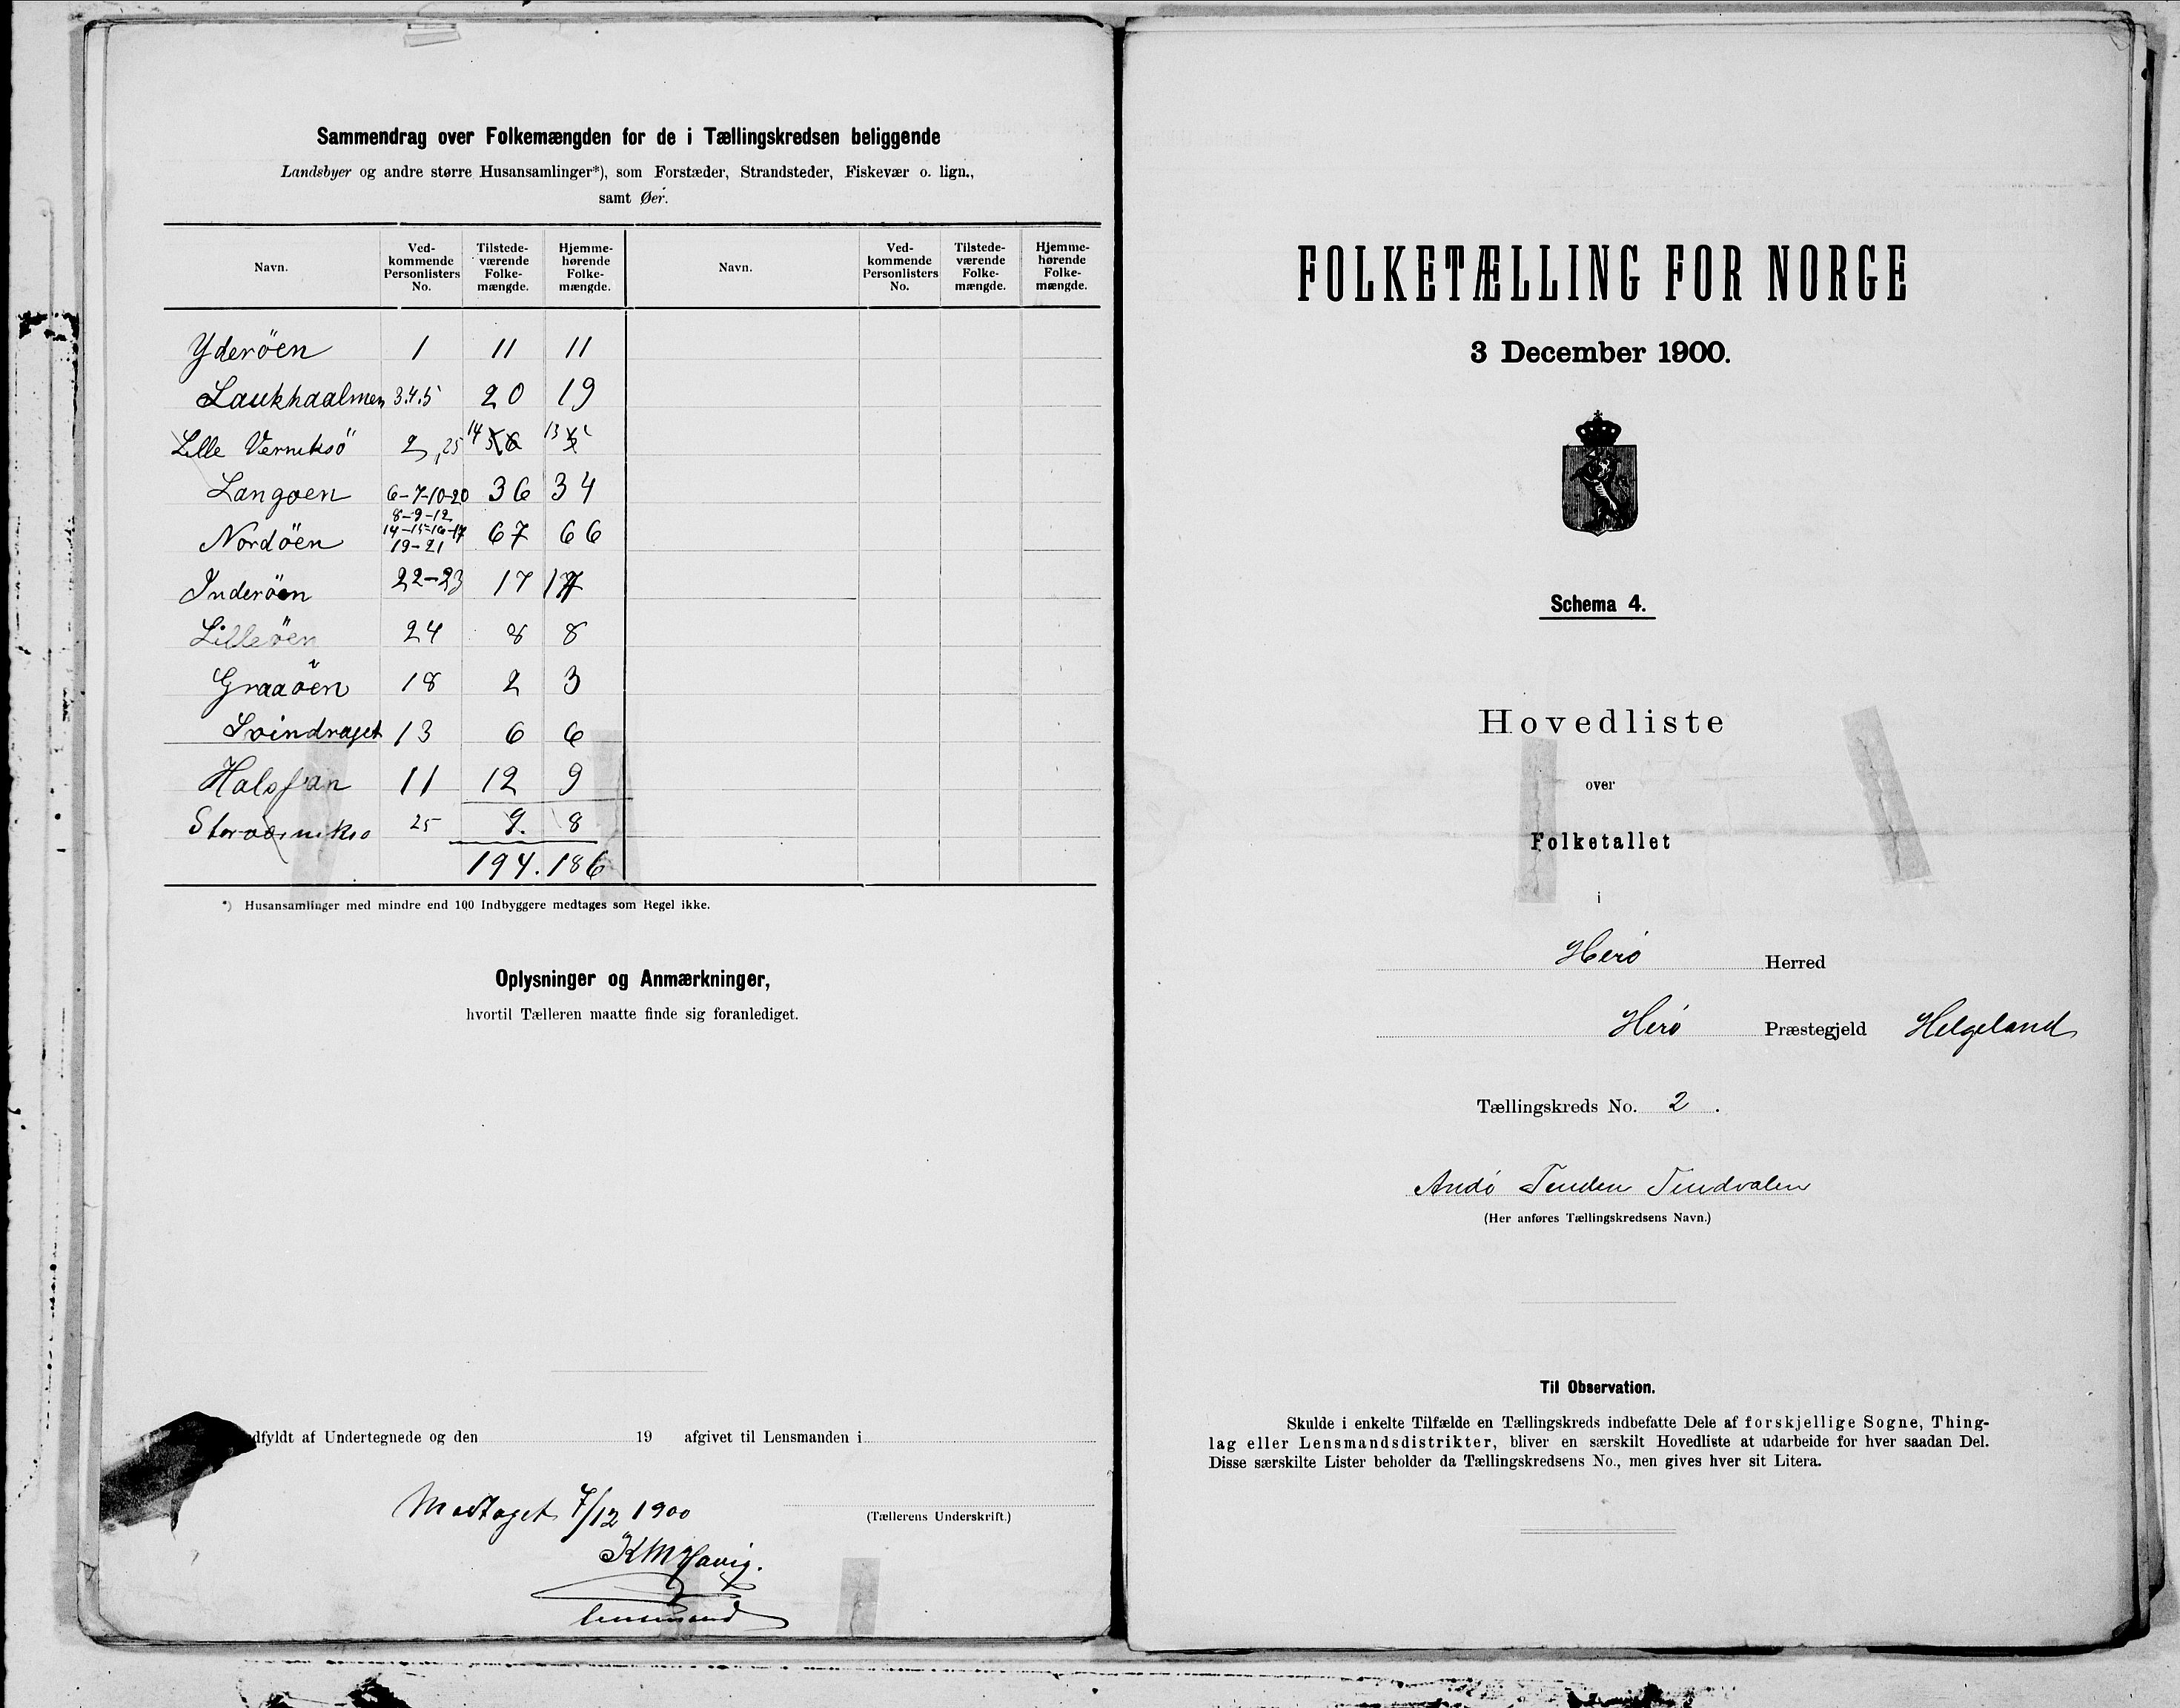 Sammendrag over Folkemængden for de i Tællingskredsen beliggende
Landsbyer og andre større Husansamlinger*), som Forstæder, Strandsteder, Fiskevær o. lign.,
samt Øer.
Navn. Ved-kommende Personlisters No. Tilstede-værende Folke-mængde. Hjemme-hørende Folke-mængde. Navn. Ved-kommende Personlisters No. Tilstede-værende Folke-mængde. Hjemme-hørende Folke-mængde.
Yderöen 1 11 11
Laukhaalmen 3.4.5 20 19
Lille Verniksö 2, 25 14 13
Langoen 6-7-10-20 36 34
Nordöen 8-9-12 14-15-16-17 19-21 67 66
Inderöen 22-23 17 17
Lilleöen 24 8 8
Graaöen 18 2 3
Svindraget 13 6 6
Halsfan 11 12 9
Storværnikso 25 9. 8
194. 186
*) Husansamlinger med mindre end 100 Indbyggere medtages som Regel ikke.
Oplysninger og Anmærkninger,
hvortil Tælleren maatte finde sig foranlediget.
dfyldt af Undertegnede og den 19 afgivet til Lensmanden i
(Tællerens Underskrift.)
Modtaget 7/12 1900
KM Havig.
lensmand
FOLKETÆLLING FOR NORGE
3 December 1900.
Schema 4.
Hovedliste
over
Folketallet
i
Herö Herred
Herö Præstegjeld Helgeland
Tællingskreds No. 2.
Andö Tenden Tendvalen
(Her anføres Tællingskredsens Navn.)
Til Observation.
Skulde i enkelte Tilfælde en Tællingskreds indbefatte Dele af forskjellige Sogne, Thing-
lag eller Lensmandsdistrikter, bliver en særskilt Hovedliste at udarbeide for hver saadan Del.
Disse særskilte Lister beholder da Tællingskredsens No., men gives hver sit Litera.